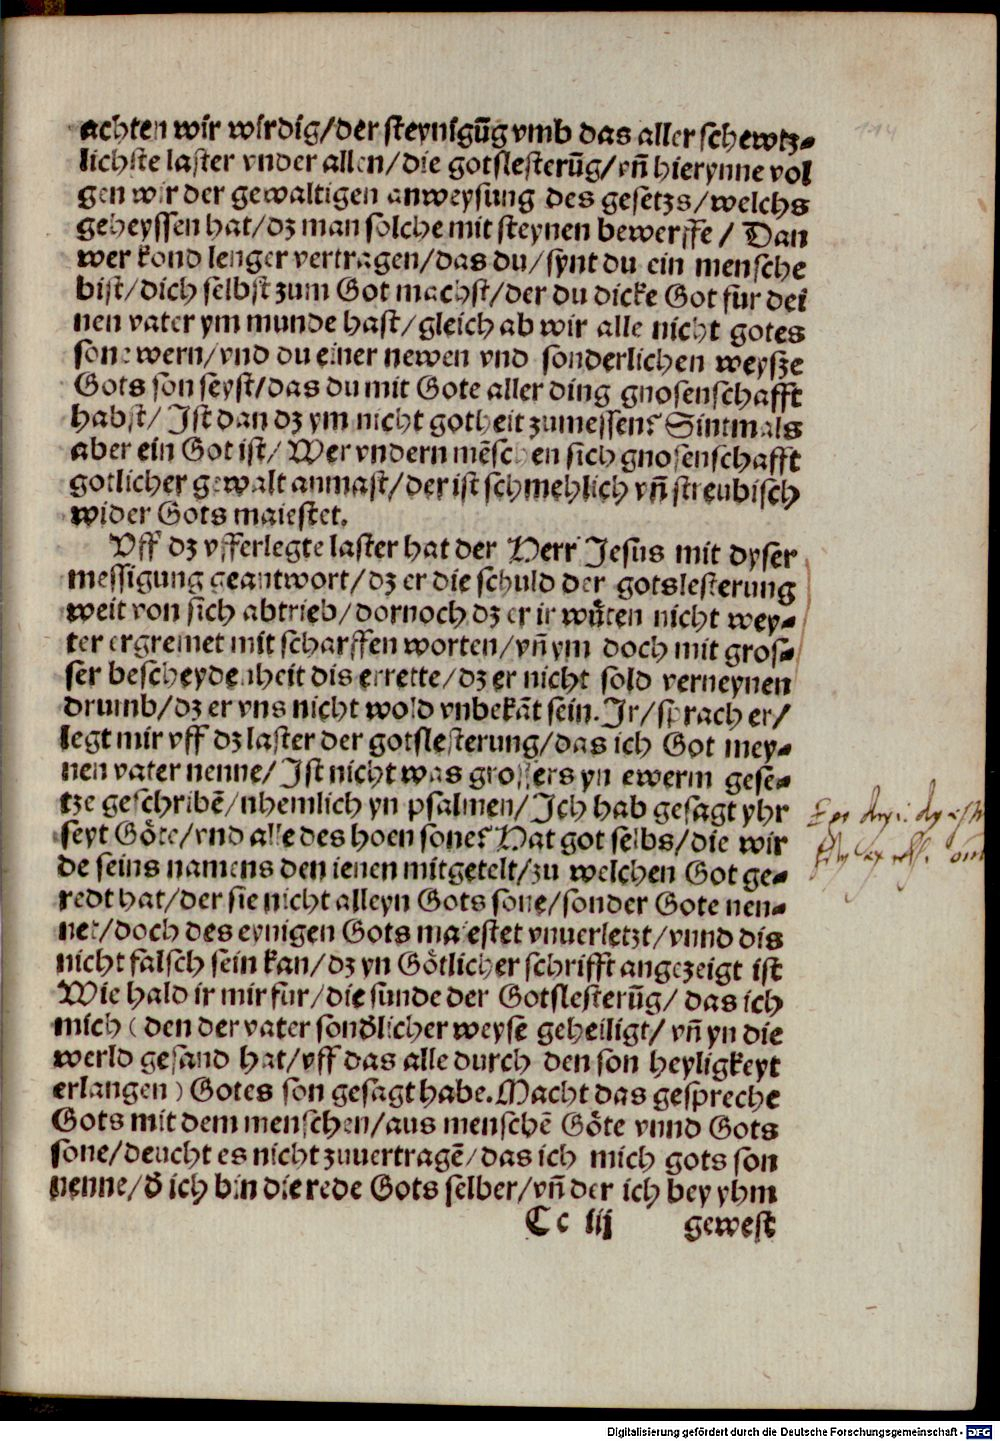 achten wir wirdig/der steynigũg vmb das aller schewtz-
lichste laster vnder allen/die gotslesterũg/vñ hierynne vol
gen wir der gewaltigen anweysung des gesetzs/welchs
geheyssen hat/dz man solche mit steynen bewerffe / Dan
wer kond lenger vertragen/das du/synt du ein mensche
bist/dich selbst zum Got machst/der du dicke Got für dei
nen vater ym munde hast/gleich ab wir alle nicht gotes
sone wern/vnd du einer newen vnd sonderlichen weysze
Gots son seyst/das du mit Gote aller ding gnosenschafft
habst/ Ist dan dz ym nicht gotheit zumessen? Sintmals
aber ein Got ist/ Wer vndern mẽschen sich gnosenschafft
gotlicher gewalt anmast/der ist schmehlich vñ streubisch
wider Gots maiestet.
Vff dz vfferlegte laster hat der Herr Jesus mit dyser
messigung geantwort/dz er die schuld der gotslesterung
weit von sich abtrieb/dornoch dz er ir wuͤten nicht wey-
ter ergremet mit scharffen worten/vñ ym doch mit gros-
ser bescheydenheit dis errette/dz er nicht sold verneynen
drumb/dz er vns nicht wold vnbekãt sein. Ir/sprach er/
legt mir vff dz laster der gotslesterung/das ich Got mey-
nen vater nenne/ Ist nicht was grossers yn ewerm gese-
tze geschribẽ/nhemlich yn psalmen/Ich hab gesagt yhr
seyt Göte/vnd alle des hoen sone? Hat got selbs/die wir
de seins namens den ienen mitgetelt/zu welchen Got ge-
redt hat/der sie nicht alleyn Gots sone/sonder Gote nen-
net/doch des eynigen Gots maiestet vnuerletzt/vnnd dis
nicht falsch sein kan/dz yn Götlicher schrifft angezeigt ist
Wie hald ir mir für/die sünde der Gotslesterũg/ das ich
mich (den der vater sondlicher weyse geheiligt/ vñ yn die
werld gesand hat/vff das alle durch den son heyligkeyt
erlangen) Gotes son gesagt habe. Macht das gespreche
Gots mit dem menschen/aus menschẽ Göte vnnd Gots
sone/deucht es nicht zuuertragẽ/das ich mich gots son
nenne/ď ich bin die rede Gots selber/vñ der ich bey yhm
Cc iij gewest
Digitalisierung gefördert durch die Deutsche Forschungsgemeinschaft - DFG